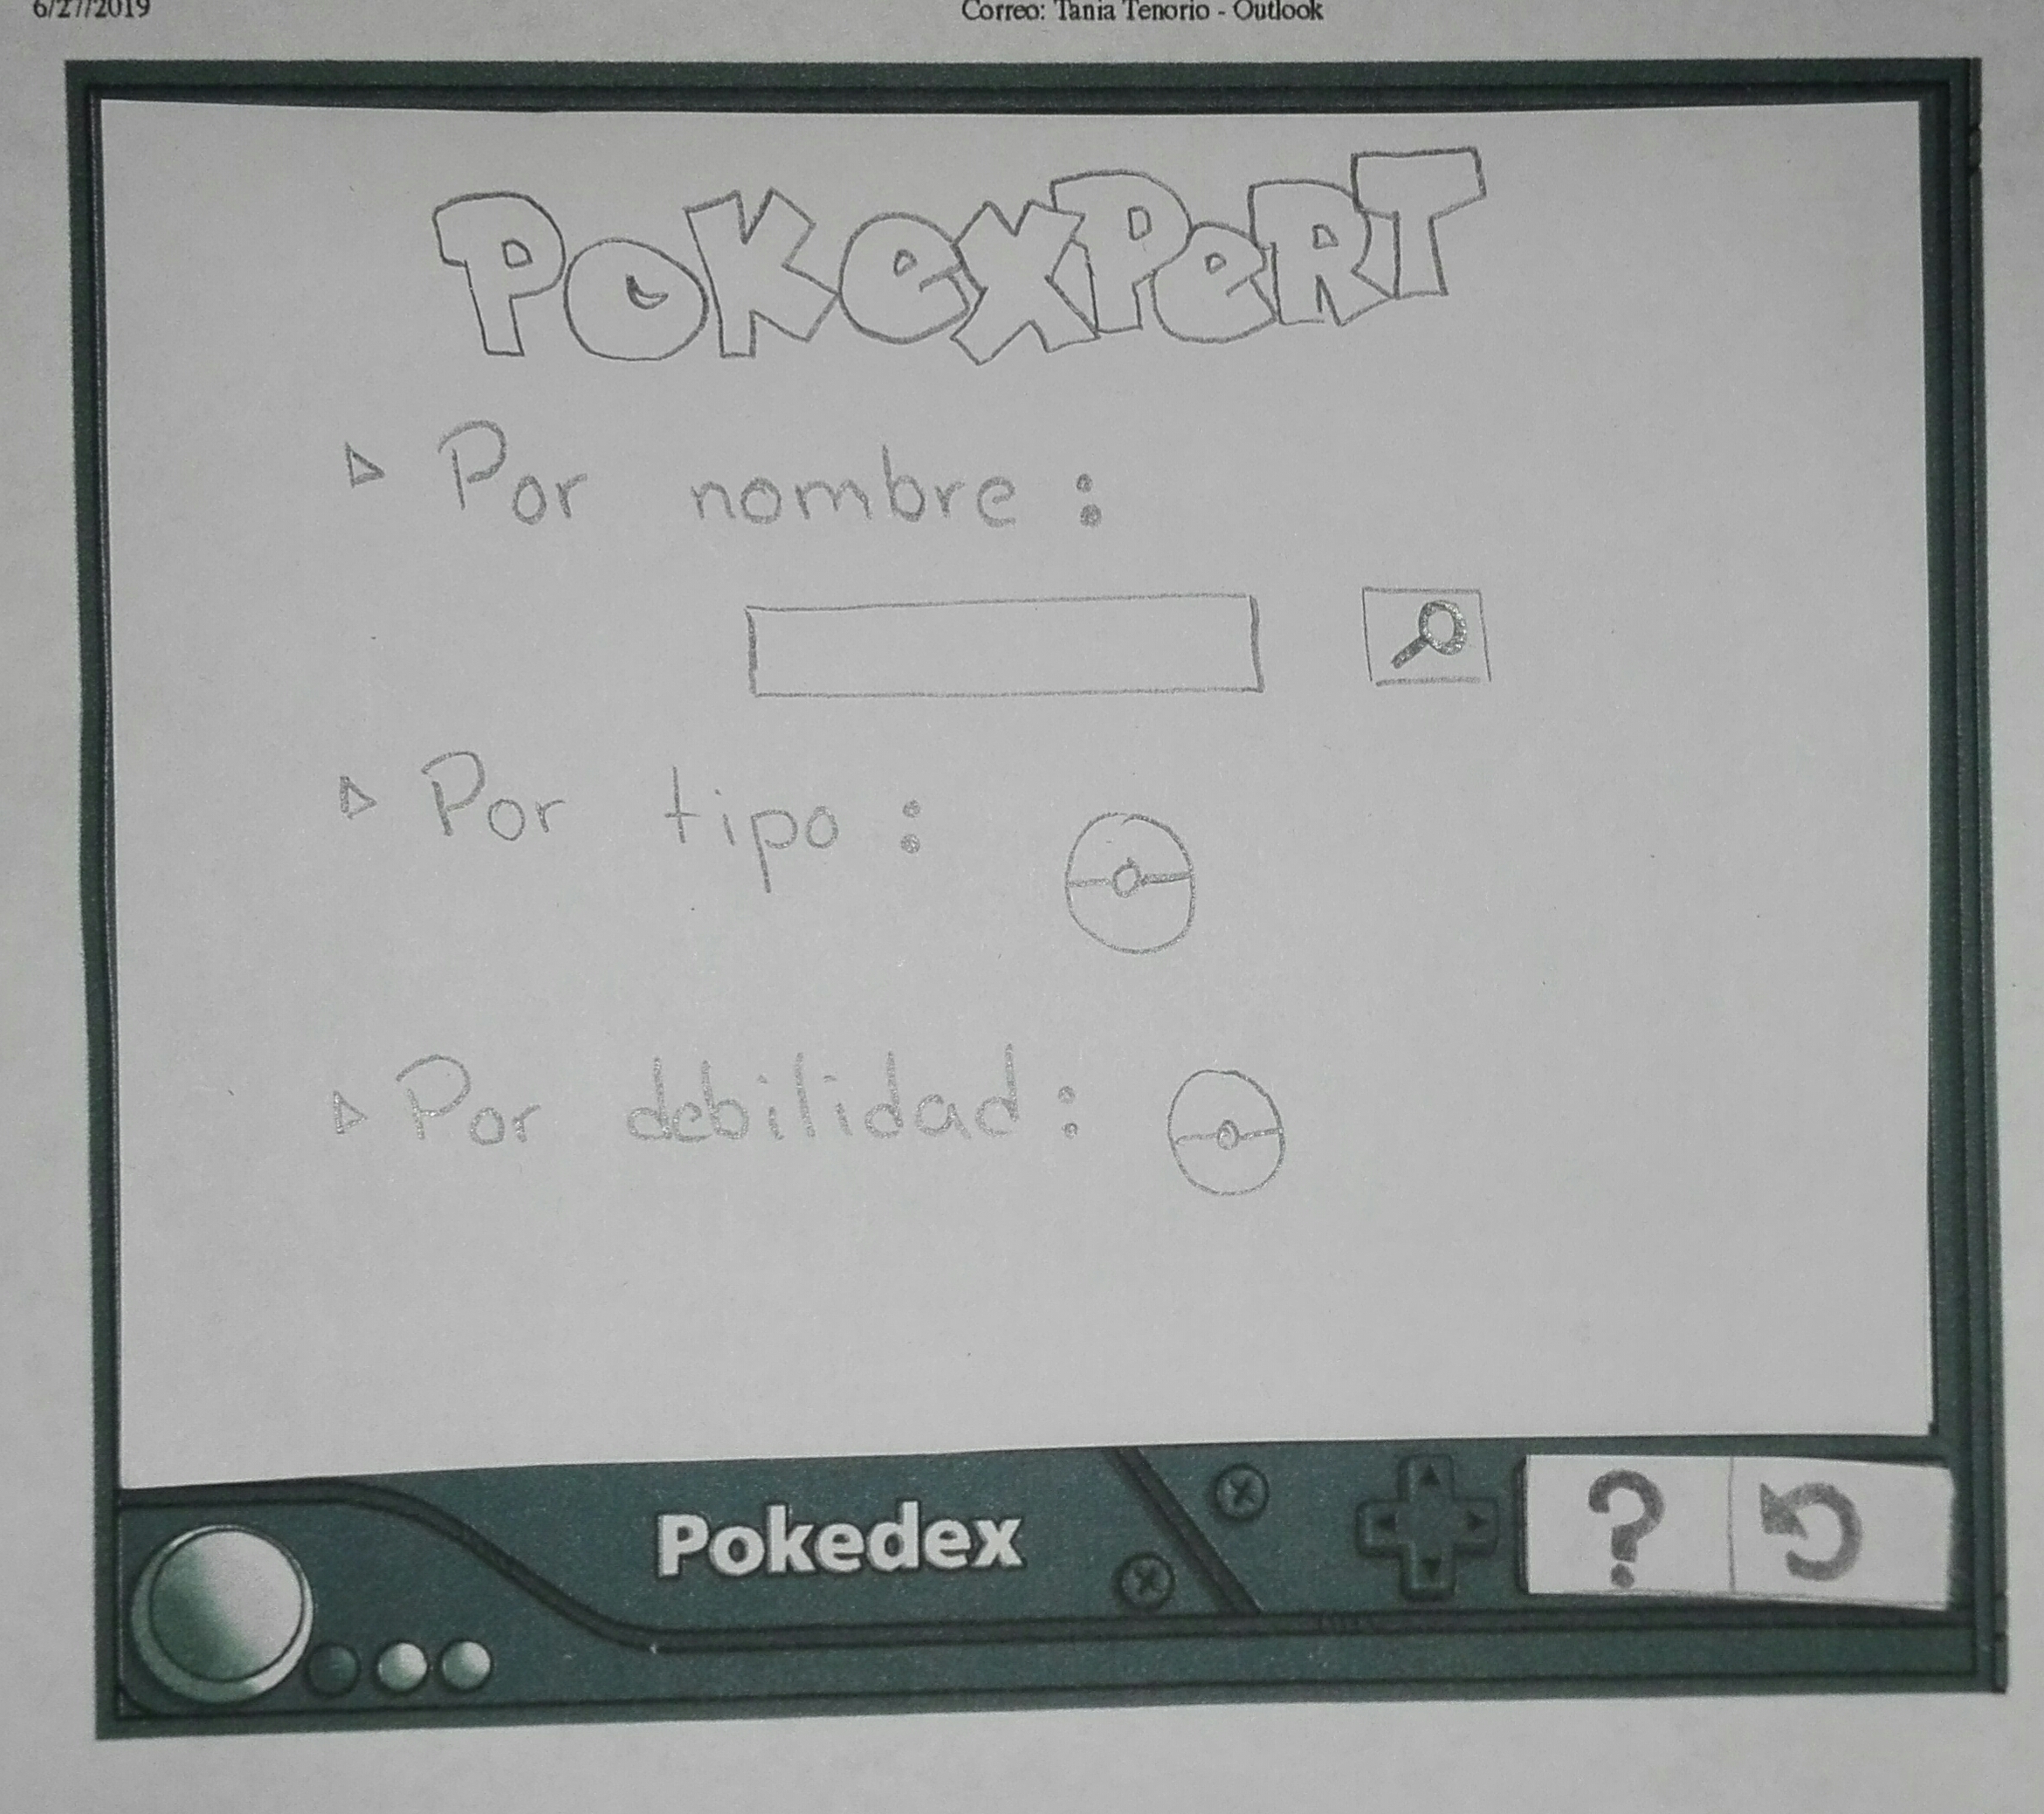 6/27/2019 Correo: Tania Tenorio - Outlook
POKeXPeRT
Por nombre :
Por tipo :
Por debilidad :
Pokedex ?